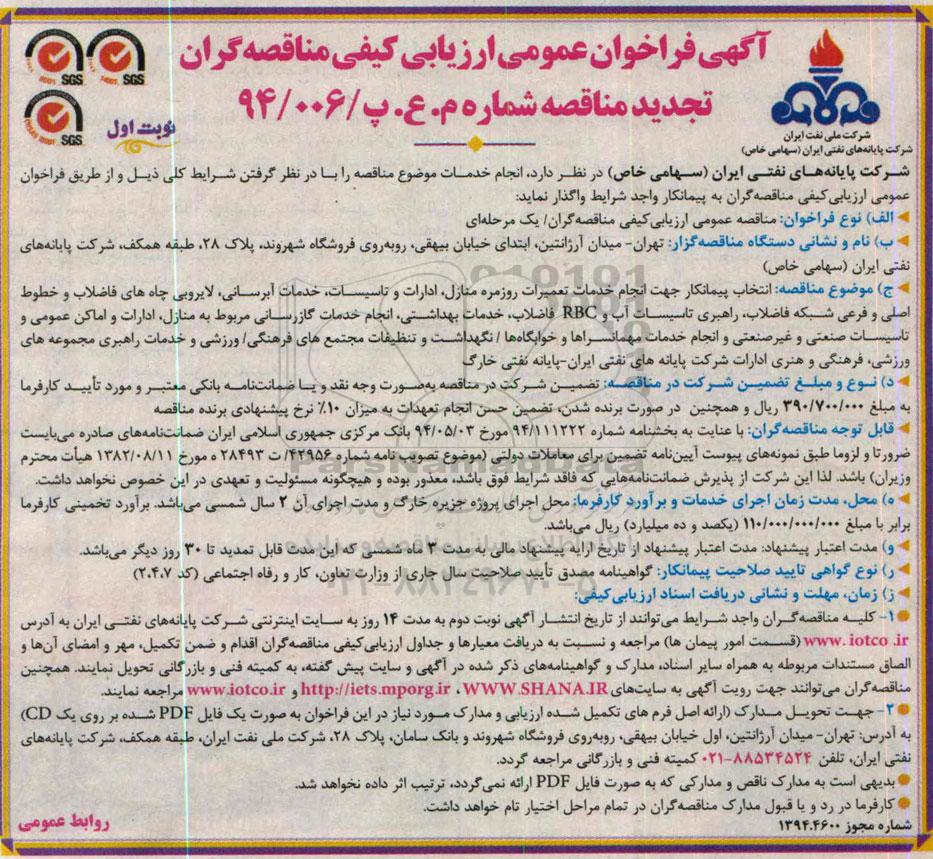 آگهی فراخوان عمومی ارزیابی کیفی مناقصه گران
تجدید مناقصه شماره م. ع. پ/۹۴/۰۰۶
نوبت اول
SGS
SGS
SGS
شرکت ملی نفت ایران
شرکت پایانه‌های نفتی ایران (سهامی خاص)
شرکت پایانه‌های نفتی ایران (سهامی خاص) در نظر دارد، انجام خدمات موضوع مناقصه را با در نظر گرفتن شرایط کلی ذیل و از طریق فراخوان
عمومی ارزیابی کیفی مناقصه‌گران به پیمانکار واجد شرایط واگذار نماید:
الف) نوع فراخوان: مناقصه عمومی ارزیابی کیفی مناقصه‌گران/ یک مرحله‌ای
ب) نام و نشانی دستگاه مناقصه‌گزار: تهران- میدان آرژانتین، ابتدای خیابان بیهقی، روبه‌روی فروشگاه شهروند، پلاک ۲۸، طبقه همکف، شرکت پایانه‌های
نفتی ایران (سهامی خاص)
ج) موضوع مناقصه: انتخاب پیمانکار جهت انجام خدمات تعمیرات روزمره منازل، ادارات و تاسیسات، خدمات آبرسانی، لایروبی چاه های فاضلاب و خطوط
اصلی و فرعی شبکه فاضلاب، راهبری تاسیسات آب و RBC فاضلاب، خدمات بهداشتی، انجام خدمات گازرسانی مربوط به منازل، ادارات و اماکن عمومی و
تاسیسات صنعتی و غیرصنعتی و انجام خدمات مهمانسراها و خوابگاه‌ها / نگهداشت و تنظیفات مجتمع های فرهنگی/ ورزشی و خدمات راهبری مجموعه های
ورزشی، فرهنگی و هنری ادارات شرکت پایانه های نفتی ایران-پایانه نفتی خارگ
د) نوع و مبلغ تضمین شرکت در مناقصه: تضمین شرکت در مناقصه به‌صورت وجه نقد و یا ضمانت‌نامه بانکی معتبر و مورد تأیید کارفرما
به مبلغ ۳۹۰/۷۰۰/۰۰۰ ریال و همچنین در صورت برنده شدن، تضمین حسن انجام تعهدات به میزان ۱۰٪ نرخ پیشنهادی برنده مناقصه
قابل توجه مناقصه‌گران: با عنایت به بخشنامه شماره ۹۴/۱۱۱۲۲۲ مورخ ۹۴/۰۵/۰۳ بانک مرکزی جمهوری اسلامی ایران ضمانت‌نامه‌های صادره می‌بایست
ضرورتا و لزوما طبق نمونه‌های پیوست آیین‌نامه تضمین برای معاملات دولتی (موضوع تصویب نامه شماره ۴۲۹۵۶/ ت ۲۸۴۹۳ ه مورخ ۱۳۸۲/۰۸/۱۱ هیأت محترم
وزیران) باشد. لذا این شرکت از پذیرش ضمانت‌نامه‌هایی که فاقد شرایط فوق باشد، معذور بوده و هیچگونه مسئولیت و تعهدی در این خصوص نخواهد داشت.
ه) محل، مدت زمان اجرای خدمات و برآورد کارفرما: محل اجرای پروژه جزیره خارگ و مدت اجرای آن ۲ سال شمسی می‌باشد. برآورد تخمینی کارفرما
برابر با مبلغ ۱۱۰/۰۰۰/۰۰۰/۰۰۰ (یکصد و ده میلیارد) ریال می‌باشد.
و) مدت اعتبار پیشنهاد: مدت اعتبار پیشنهاد از تاریخ ارایه پیشنهاد مالی به مدت ۳ ماه شمسی که این مدت قابل تمدید تا ۳۰ روز دیگر می‌باشد.
ر) نوع گواهی تایید صلاحیت پیمانکار: گواهینامه مصدق تأیید صلاحیت سال جاری از وزارت تعاون، کار و رفاه اجتماعی (کد ۲،۴،۷)
ز) زمان، مهلت و نشانی دریافت اسناد ارزیابی کیفی:
۱- کلیه مناقصه‌گران واجد شرایط می‌توانند از تاریخ انتشار آگهی نوبت دوم به مدت ۱۴ روز به سایت اینترنتی شرکت پایانه‌های نفتی ایران به آدرس
www. iotco .ir (قسمت امور پیمان ها) مراجعه و نسبت به دریافت معیارها و جداول ارزیابی کیفی مناقصه‌گران اقدام و ضمن تکمیل، مهر و امضای آن‌ها و
الصاق مستندات مربوطه به همراه سایر اسناد، مدارک و گواهینامه‌های ذکر شده در آگهی و سایت پیش گفته، به کمیته فنی و بازرگانی تحویل نمایند. همچنین
مناقصه‌گران می‌توانند جهت رویت آگهی به سایت‌های WWW.SHANA.IR ، http://iets.mporg.ir و www.iotco.ir مراجعه نمایند.
۲- جهت تحویل مدارک (ارائه اصل فرم های تکمیل شده ارزیابی و مدارک مورد نیاز در این فراخوان به صورت یک فایل PDF شده بر روی یک CD)
به آدرس: تهران- میدان آرژانتین، اول خیابان بیهقی، روبه‌روی فروشگاه شهروند و بانک سامان، پلاک ۲۸، شرکت ملی نفت ایران، طبقه همکف، شرکت پایانه‌های
نفتی ایران، تلفن ۸۸۵۳۴۵۲۴-۰۲۱ کمیته فنی و بازرگانی مراجعه گردد.
بدیهی است به مدارک ناقص و مدارکی که به صورت فایل PDF ارائه نمی‌گردد، ترتیب اثر داده نخواهد شد.
کارفرما در رد و یا قبول مدارک مناقصه‌گران در تمام مراحل اختیار تام خواهد داشت.
شماره مجوز ۱۳۹۴.۴۶۰۰
روابط عمومی
ParsNamadData